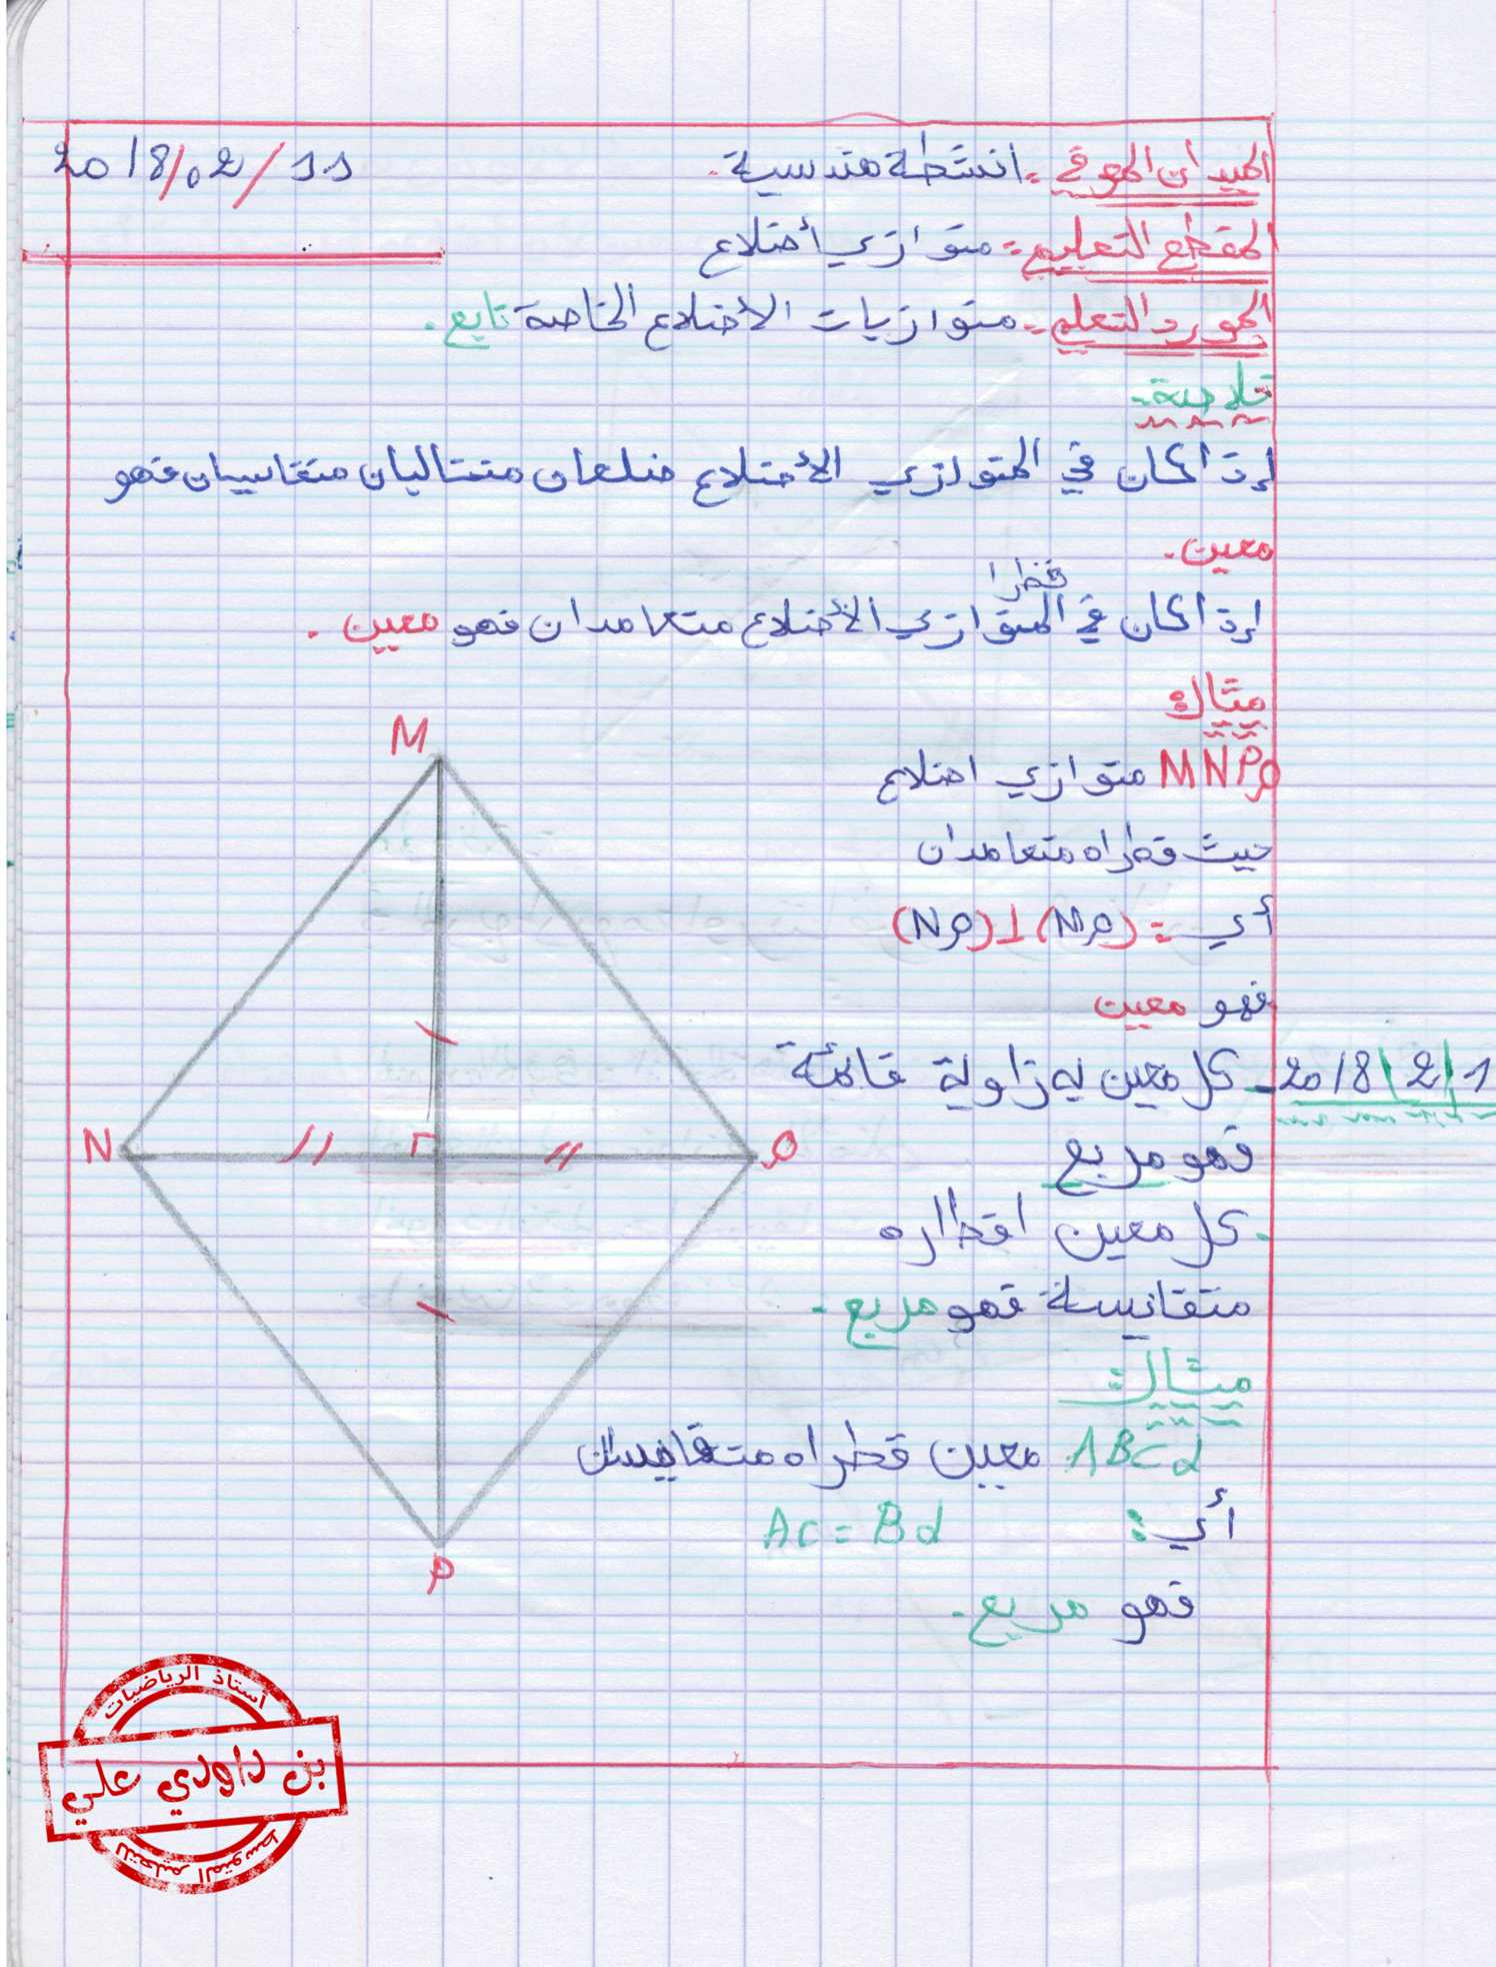 الميدان المعرفي: انشطة هندسية. 2018/02/11
المقطع التعليمي: متوازي أضلاع
المورد التعلمي: متوازيات الأضلاع الخاصة تابع.
خلاصة:
إذا كان في المتوازي الأضلاع ضلعان متتاليان متقايسان فهو
معين.
إذا كان في قطرا المتوازي الأضلاع متعامدان فهو معين.
مثال:
MNPQ متوازي اضلاع
حيث قطراه متعامدان
أي: (MP)⊥(NQ)
فهو معين
2018/2/1 - كل معين له زاوية قائمة
فهو مربع
. كل معين اقطاره
متقايسة فهو مربع.
مثال:
ABCd معين قطراه متقايسان
أي: AC = Bd
فهو مربع.
M
N
Q
P
أستاذ الرياضيات
بن داودي علي
للتعليم المتوسط